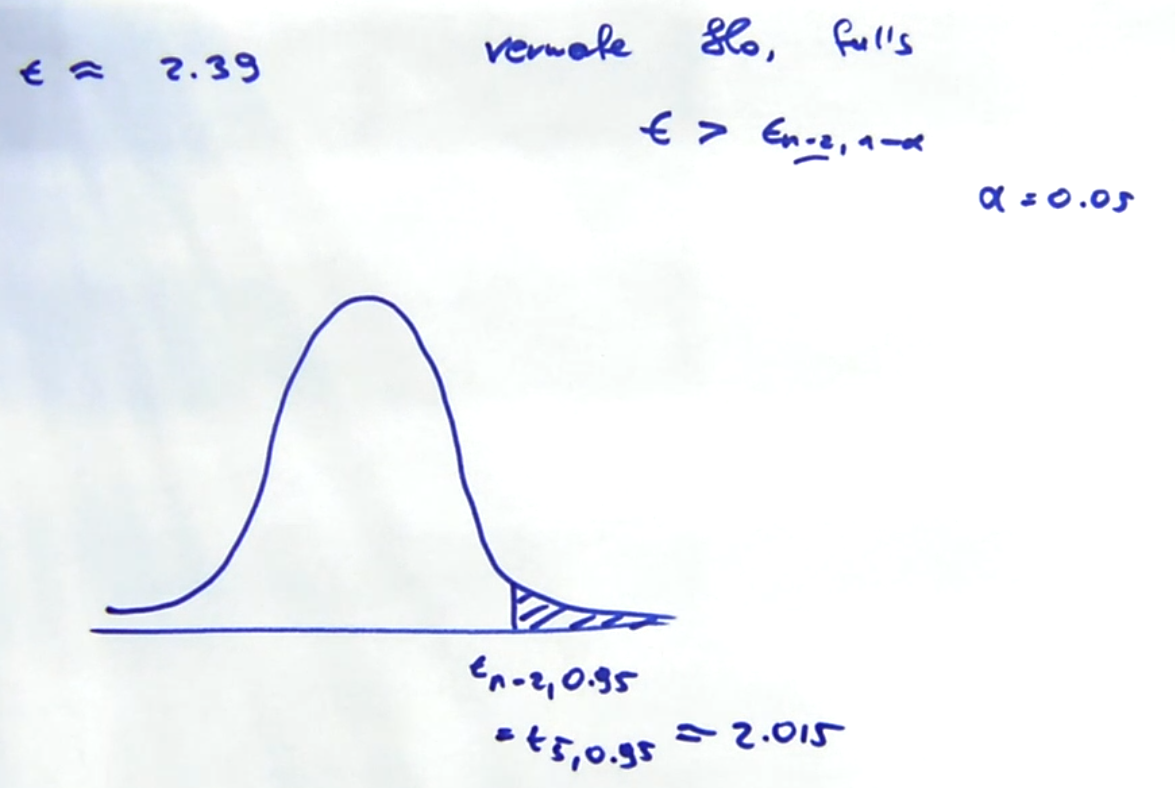 t ≈ 2.39
verwerfe H₀, falls
t > t_{n-2, 1-α}
α = 0.05
t_{n-2, 0.95}
= t_{5, 0.95} ≈ 2.015